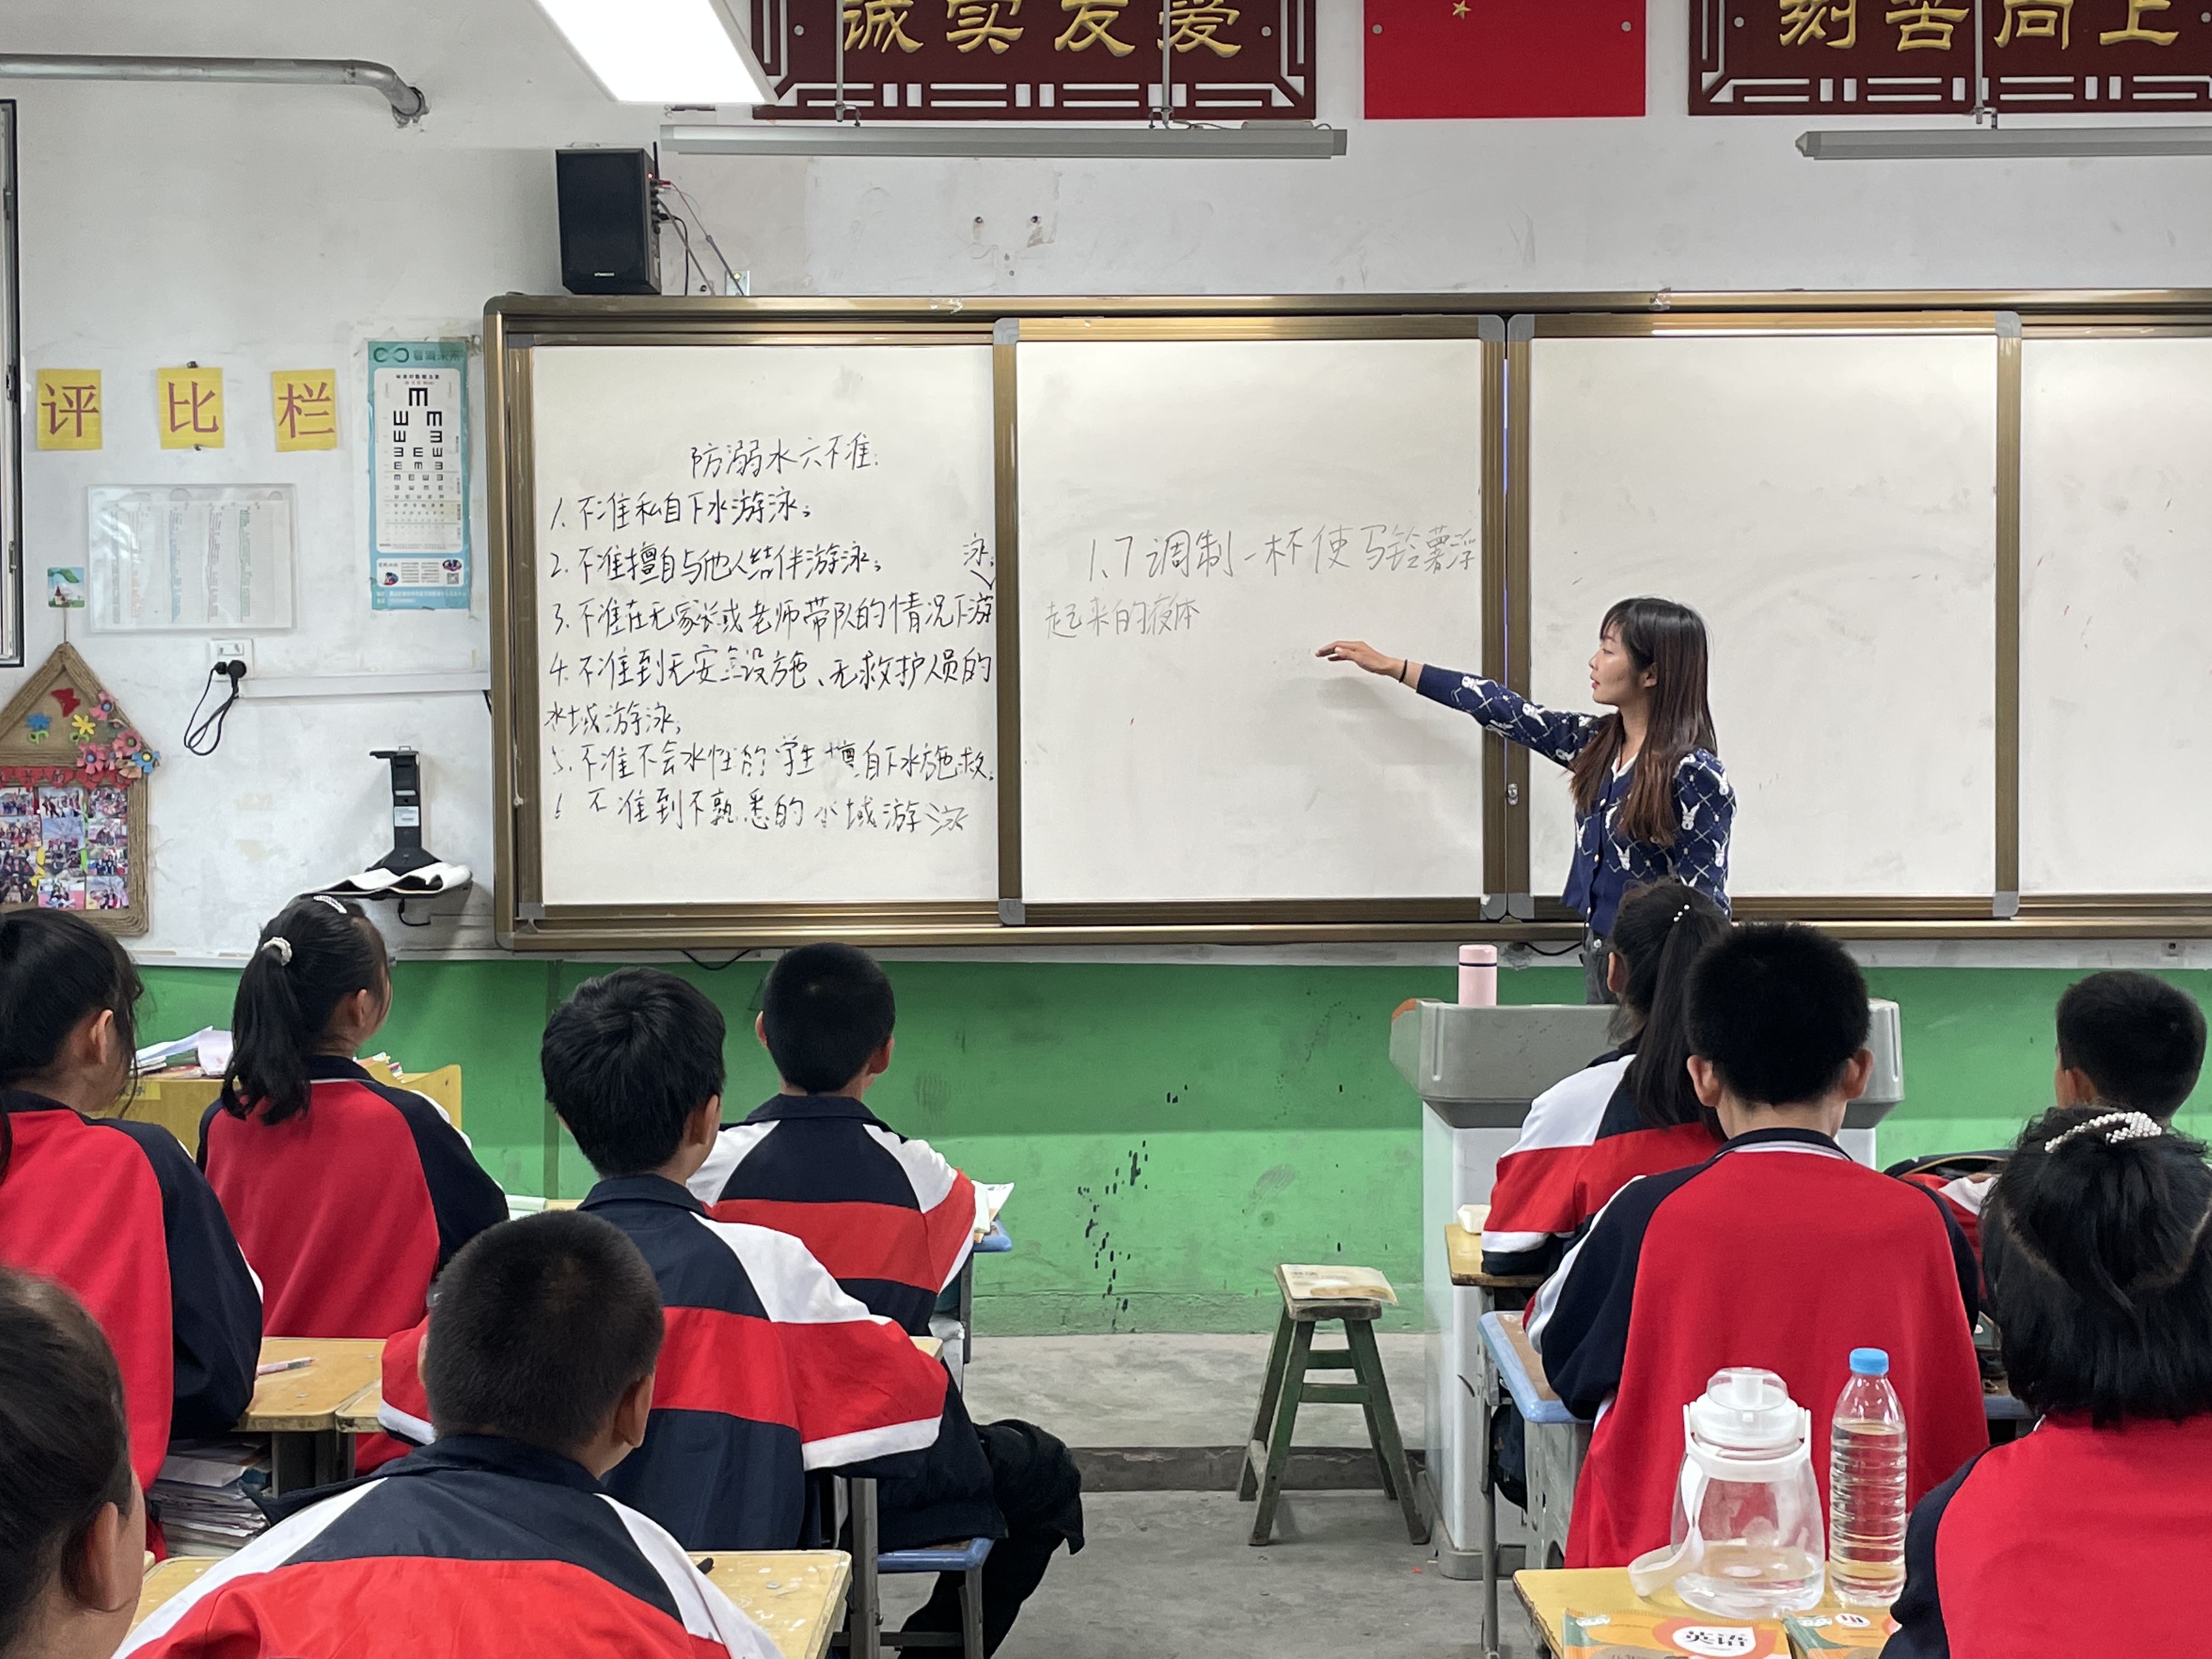 诚实友爱
刻苦向上
评比栏
防溺水六不准:
1. 不准私自下水游泳;
2. 不准擅自与他人结伴游泳;
3. 不准在无家长或老师带队的情况下游
泳;
4. 不准到无安全设施、无救护人员的
水域游泳;
5. 不准不会水性的学生擅自下水施救.
6 不准到不熟悉的水域游泳
1.7 调制一杯使马铃薯浮
起来的液体
英语